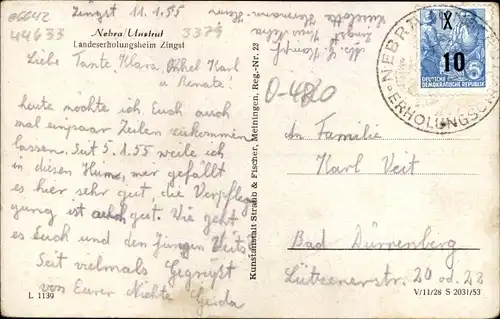 06642
44633
3379
Zingst 11.1.55
Nebra/Unstrut
Landeserholungsheim Zingst
Liebe Tante, Klara, Onkel Karl
u. Renate!
heute möchte ich Euch auch
mal ein paar Zeilen zukommen
lassen. Seit 5.1.55 weile ich
in diesen Heime, mir gefällt
es hier sehr gut, die Verpfleg
gung ist auch gut. Wie geht
es Euch und den Jungen Veits?
Seit vielmals Gegrüßt
von Eurer Nichte Gerda
L 1139
Kunstanstalt Straub & Fischer, Meiningen, Reg.-Nr. 22
Abs.
Zingst
0-4820
X
10
DEUTSCHE
DEMOKRATISCHE
NEBRA
ERHOLUNGS
An Familie
Karl Veit
Bad Dürrenberg
Lützenerstr. 20 od. 22
V/11/28 S 2031/53